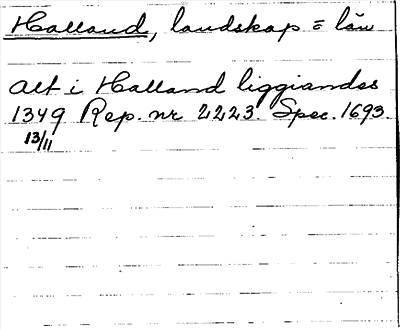 Halland, landskap = län
Alt i Halland liggiandes
1349 Rep. nr 2223. Spec. 1693.
13/11